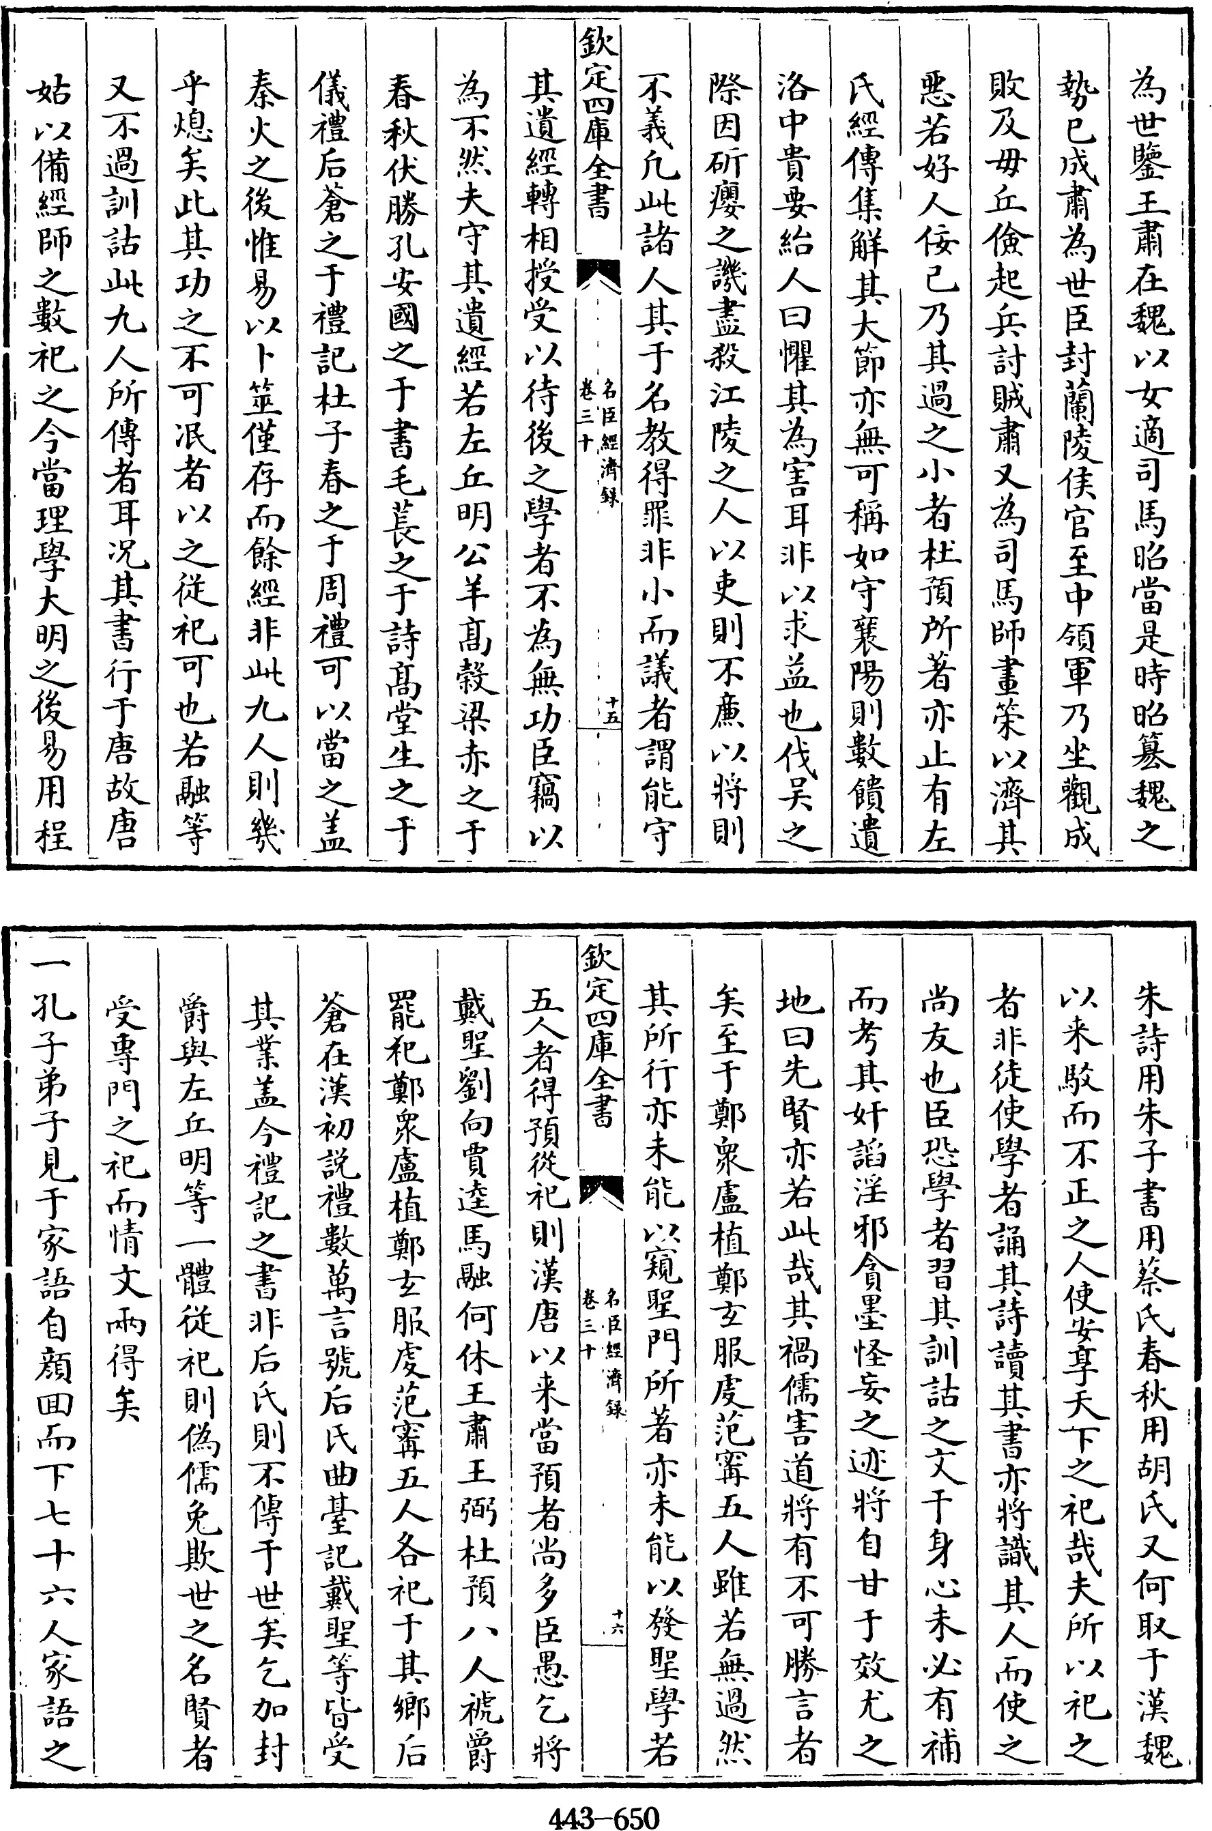 為世鑒王肅在魏以女適司馬昭當是時昭篡魏之
勢已成肅為世臣封蘭陵侯官至中領軍乃坐觀成
敗及毋丘儉起兵討賊肅又為司馬師畫策以濟其
惡若好人佞己乃其過之小者杜預所著亦止有左
氏經傳集解其大節亦無可稱如守襄陽則數饋遺
洛中貴要給人曰懼其為害耳非以求益也伐吳之
際因斫癭之譏盡殺江陵之人以吏則不廉以將則
不義凡此諸人其于名教得罪非小而議者謂能守
欽定四庫全書
名臣經濟録
卷三十
十五
其遺經轉相授受以待後之學者不為無功臣竊以
為不然夫守其遺經若左丘明公羊髙榖梁赤之于
春秋伏勝孔安國之于書毛萇之于詩髙堂生之于
儀禮后蒼之于禮記杜子春之于周禮可以當之盖
秦火之後惟易以卜筮僅存而餘經非此九人則幾
乎熄矣此其功之不可泯者以之從祀可也若融等
又不過訓詁此九人所傳者耳况其書行于唐故唐
姑以備經師之數祀之今當理學大明之後易用程
朱詩用朱子書用蔡氏春秋用胡氏又何取于漢魏
以来駁而不正之人使安享天下之祀哉夫所以祀之
者非徒使學者誦其詩讀其書亦將識其人而使之
尚友也臣恐學者習其訓詁之文于身心未必有補
而考其奸諂淫邪貪墨怪妄之迹將自甘于效尤之
地曰先賢亦若此哉其禍儒害道將有不可勝言者
矣至于鄭衆盧植鄭玄服虔范甯五人雖若無過然
其所行亦未能以窺聖門所著亦未能以發聖學若
欽定四庫全書
名臣經濟録
卷三十
十六
五人者得預從祀則漢唐以来當預者尚多臣愚乞將
戴聖劉向賈逵馬融何休王肅王弼杜預八人褫爵
罷祀鄭衆盧植鄭玄服虔范甯五人各祀于其鄉后
蒼在漢初説禮數萬言號后氏曲臺記戴聖等皆受
其業盖今禮記之書非后氏則不傳于世矣乞加封
爵與左丘明等一體從祀則偽儒免欺世之名賢者
受專門之祀而情文兩得矣
一孔子弟子見于家語自顔回而下七十六人家語之
443-650